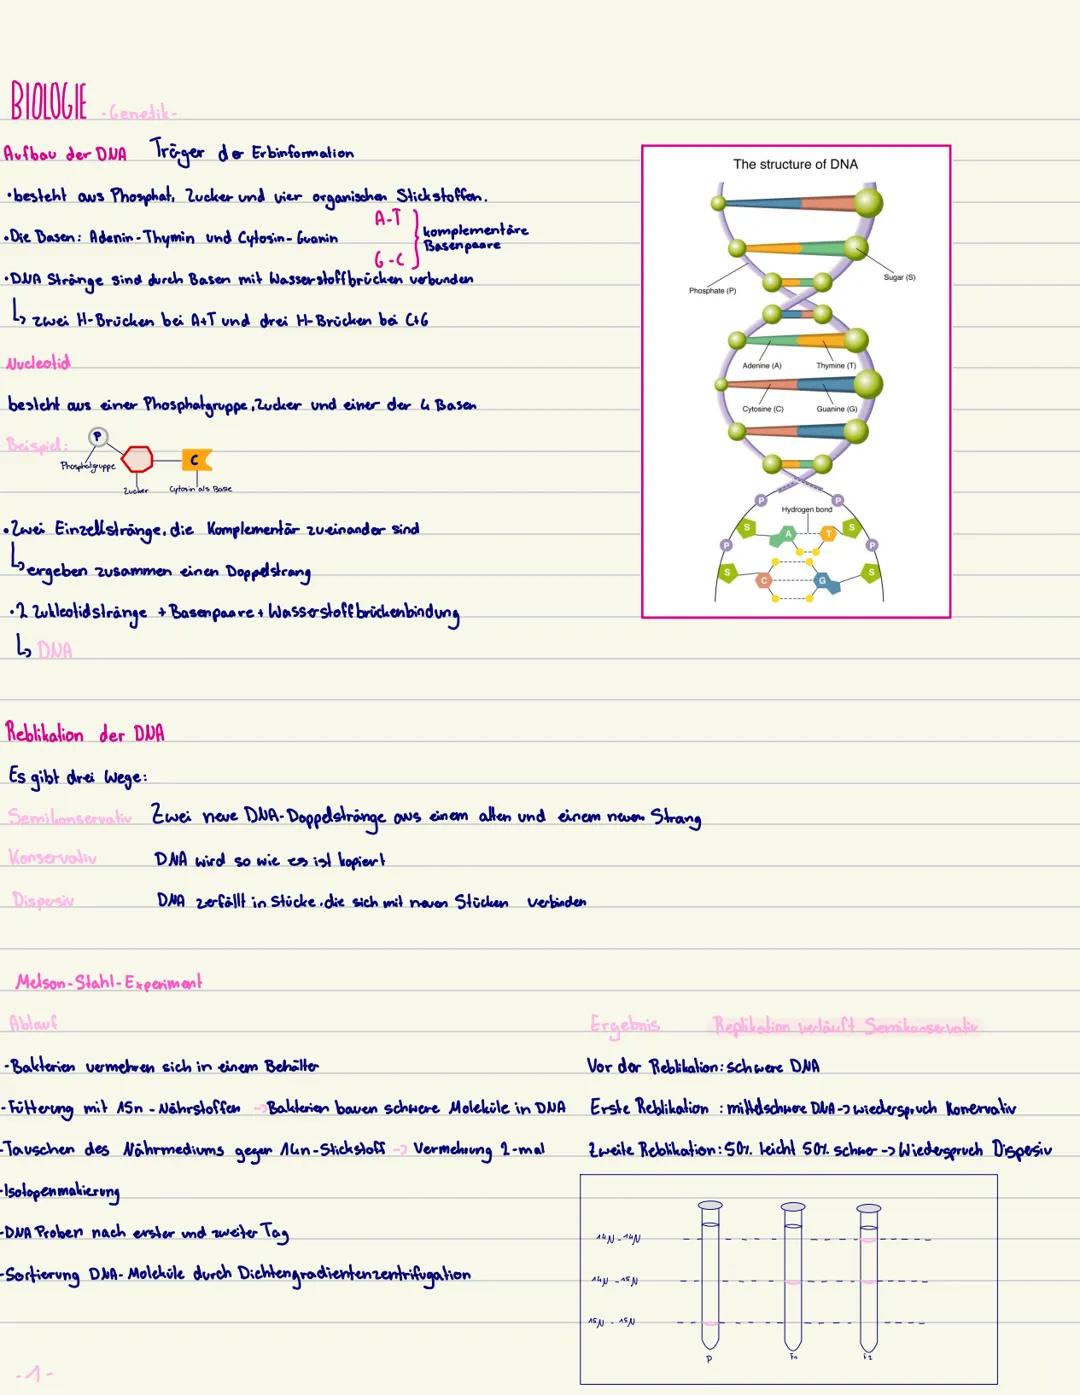 BIOLOGIE -Genetik-
Aufbau der DNA Träger der Erbinformation
•besteht aus Phosphat, Zucker und vier organischen Stickstoffen.
•Die Basen: Adenin-Thymin und Cytosin-Guanin
A-T
G-C
komplementäre
Basenpaare
•DNA Stränge sind durch Basen mit Wasserstoffbrücken verbunden
↳ zwei H-Brücken bei A+T und drei H-Brücken bei C+G
Nucleotid
besteht aus einer Phosphatgruppe, Zucker und einer der 4 Basen
Beispiel:
P
C
Phosphatgruppe
Zucker
Cytosin als Base
•Zwei Einzellstränge, die Komplementär zueinander sind
↳ ergeben zusammen einen Doppelstrang
•2 Zukleotidstränge + Basenpaare + Wasserstoffbrückenbindung
↳ DNA
The structure of DNA
Sugar (S)
Phosphate (P)
Adenine (A)
Thymine (T)
Cytosine (C)
Guanine (G)
Hydrogen bond
P P
S A T S
P P
S C G S
Reblikation der DNA
Es gibt drei Wege:
Semikonservativ Zwei neue DNA-Doppelstränge aus einem alten und einem neuen Strang
Konservativ DNA wird so wie es ist kopiert
Dispersiv DNA zerfällt in Stücke, die sich mit neuen Stücken verbinden
Melson-Stahl-Experiment
Ablauf
-Bakterien vermehren sich in einem Behälter
-Fütterung mit 15n-Nährstoffen -> Bakterien bauen schwere Moleküle in DNA
-Tauschen des Nährmediums gegen 14n-Stickstoff -> Vermehrung 2-mal
-Isotopenmakierung
-DNA Proben nach erster und zweiter Tag
-Sortierung DNA-Moleküle durch Dichtengradientenzentrifugation
Ergebnis Replikation verläuft Semikonservativ
Vor der Reblikation: schwere DNA
Erste Reblikation : mittelschwere DNA -> wiederspruch Konervativ
Zweite Reblikation: 50% leicht 50% schwer -> Wiederspruch Dispesiv
14N-14N
14N-15N
15N-15N
P F1 F2
-1-